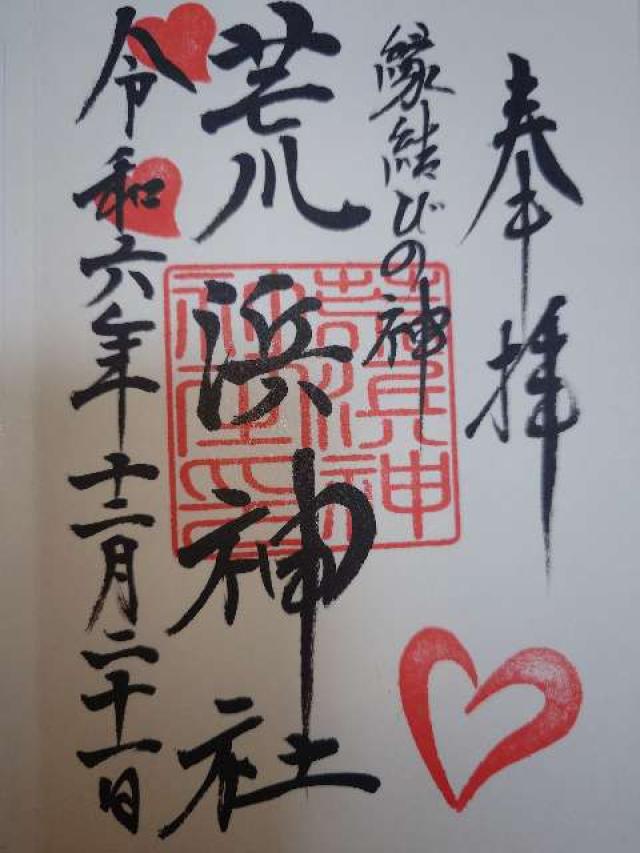 奉拝
縁結びの神
荒浜神社
令和六年十二月二十一日